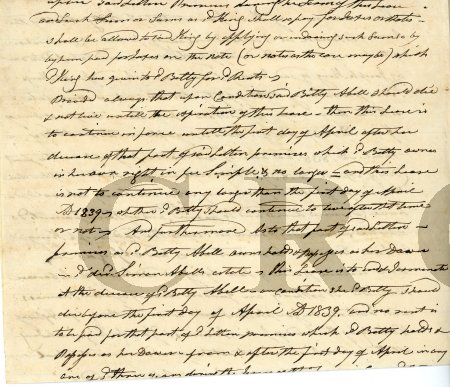 and such Sum or Sums as sd King shall so pay for Taxes or
shall be allowed to sd King by applying or indorsing such Sum so
by him paid for Taxes on the Note (or notes as the case may be) which
sd King has given to sd Betty for sd Rents
Provided always, that upon Condition said Betty Abell should die
& not live untill the expiration of this Lease then this Lease is
to continue in force untill the first day of April after her
decease of that part of said letten premises which sd Betty owns
in her own right in fee Simple & no longer and this Lease
is not to continue any longer than the first day of April
AD 1839 whether sd Betty should continue to live after that time
or not And furthermore As to that part of said letten
premises as sd Betty Abell now holds & possesses as her Dower
in sd Abells estate this Lease is to end & terminate
at the decease of sd Betty Abell on Condition she sd Betty should
die before the first day of April AD 1839, and no rent is
to be paid for that part of sd letten premises which sd Betty holds &
Possesses as her Dower from & after the first day of April in any
one of sd three years
CRO